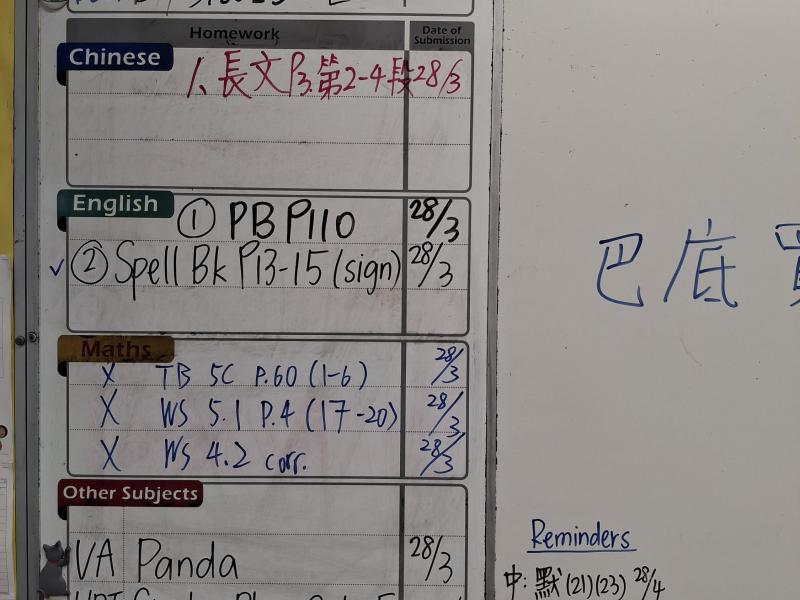 Homework Date of Submission
Chinese
1、長文P.3.第2-4段 28/3
English
① PB P110 28/3
✓ ② Spell Bk P13-15 (sign) 28/3
巴底
Maths
X TB 5C P.60 (1-6) 28/3
X WS 5.1 P.4 (17-20) 28/3
X WS 4.2 corr. 28/3
Other Subjects
VA Panda 28/3
Reminders
中: 默 (21)(23) 28/4